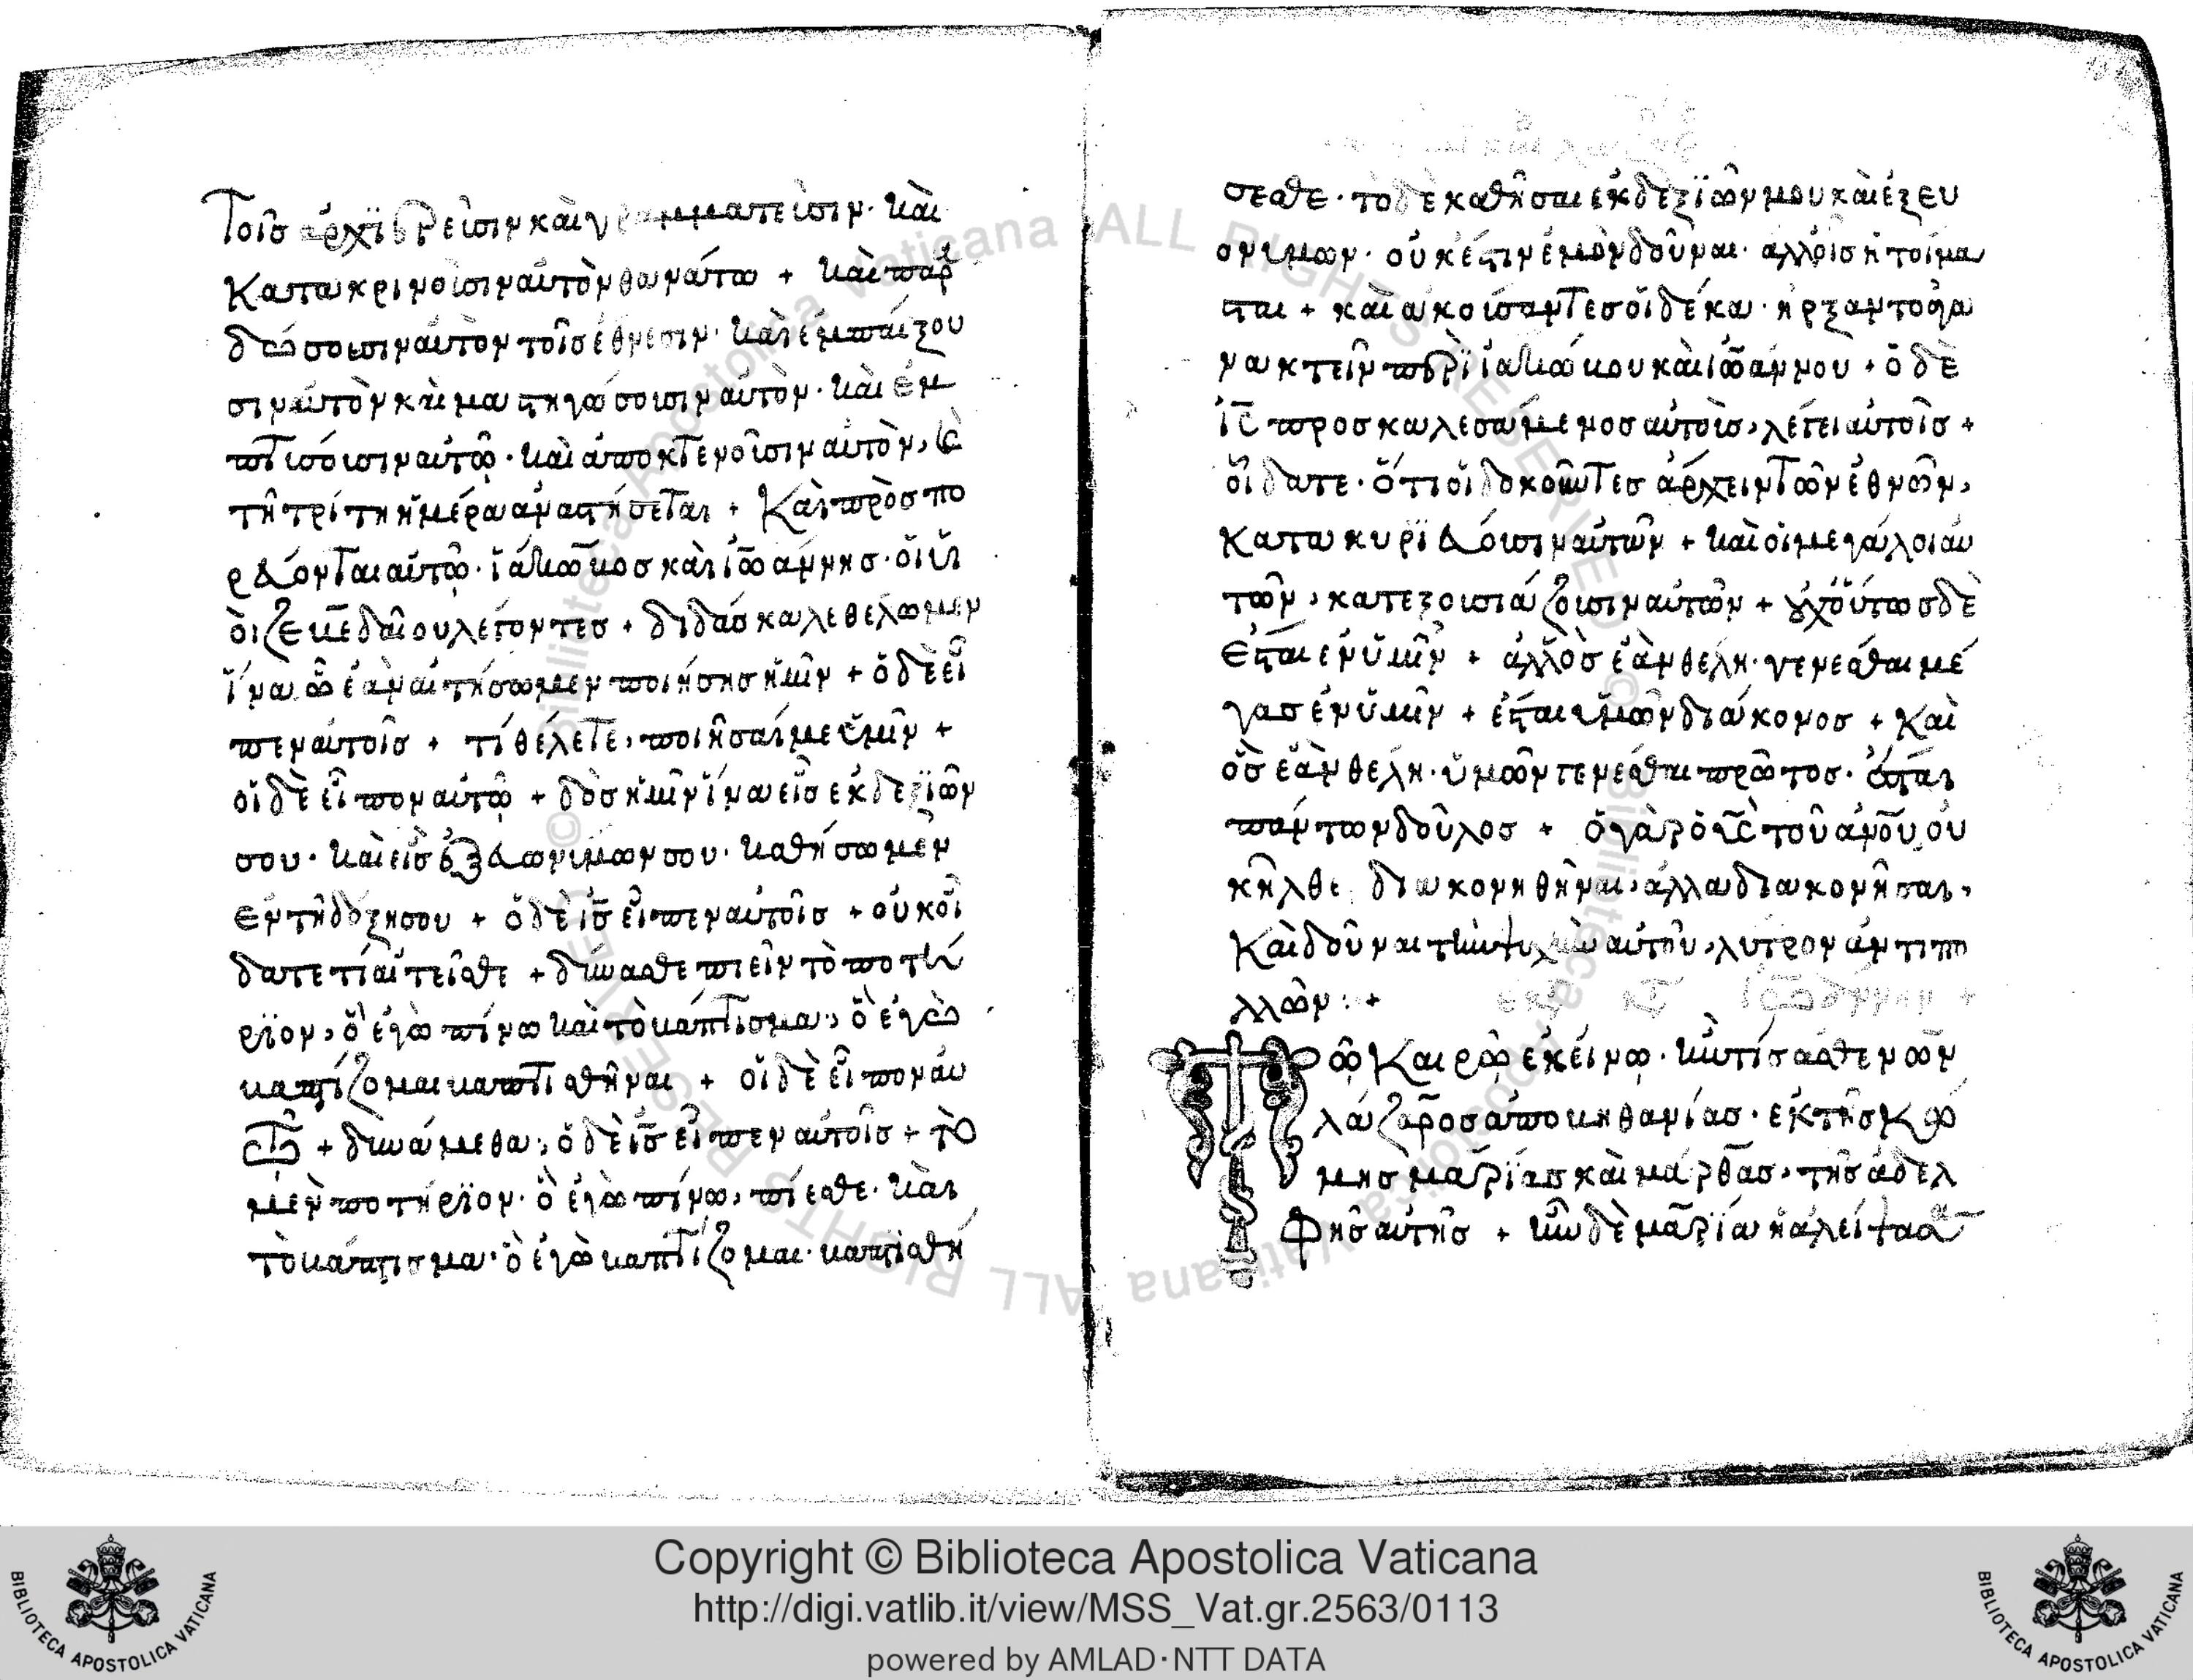 Τοῖσ ἀρχϊερεῦσιν καὶ γραμματεῦσιν· καὶ
κατακρινοῦσιν αὐτὸν θανάτω + καὶ παρα
δώσουσιν αὐτὸν τοῖσ ἔθνεσιν· καὶ ἐμπαίξου
σιν αὐτὸν καὶ μαστηγώσουσιν αὐτὸν· καὶ ἐμ
πτύσουσιν αὐτῶ· καὶ ἀποκτενοῦσιν αὐτὸν, καὶ
τῆ τρίτη ἡμέρα ἀναστήσεται + Καὶ προσπο
ρεύονται αὐτῶ· ἰάκωβοσ καὶ ἰωάννησ· οἱ υἱ
οὶ ζεβεδαίου λέγοντεσ + διδάσκαλε θέλωμεν
ἵνα ὃ ἐὰν αἰτήσωμεν ποιήσησ ἡμῖν + ὁ δὲ εἶ
πεν αὐτοῖσ + τί θέλετε, ποιῆσαί με ὑμῖν +
οἱ δὲ εἶπον αὐτῶ + δὸσ ἡμῖν ἵνα εἷσ ἐκ δεξϊῶν
σου· καὶ εἷσ ἐξ εὐωνύμων σου· καθήσωμεν
ἐν τῆ δόξη σου + ὁ δὲ ι̅σ̅ εἶπεν αὐτοῖσ + οὐκ οἴ
δατε τί αἰτεῖσθε + δύνασθε πιεῖν τὸ ποτή
ρϊον, ὃ ἐγὼ πίνω καὶ τὸ βάπτισμα, ὃ ἐγὼ
βαπτίζομαι βαπτισθῆναι + οἱ δὲ εἶπον αὐ
τῶ + δυνάμεθα, ὁ δὲ ι̅σ̅ εἶπεν αὐτοῖσ + τὸ
μὲν ποτήρϊον· ὃ ἐγὼ πίνω, πίεσθε· καὶ
τὸ βάπτισμα· ὃ ἐγὼ βαπτίζομαι· βαπτισθή
σεσθε· τὸ δὲ καθῆσαι ἐκ δεξϊῶν μου καὶ ἐξ εὐ
ονύμων· οὐκ ἔστιν ἐμὸν δοῦναι· ἀλλ' οἷσ ἡτοίμα
σται + καὶ ἀκούσαντεσ οἱ δέκα· ἤρξαντο ἀγα
νακτεῖν περὶ ἰακώβου καὶ ἰωάννου + ὁ δὲ
ι̅σ̅ προσκαλεσάμενοσ αὐτοὺσ, λέγει αὐτοῖσ +
οἴδατε· ὅτι οἱ δοκοῦντεσ ἄρχειν τῶν ἐθνῶν,
κατακυρϊεύουσιν αὐτῶν + καὶ οἱ μεγάλοι αὐ
τῶν, κατεξουσιάζουσιν αὐτῶν + οὐχ οὕτωσ δὲ
ἔσται ἐν ὑμῖν + ἀλλ' ὃσ ἐὰν θέλη· γενέσθαι μέ
γασ ἐν ὑμῖν + ἔσται ὑμῶν διάκονοσ + Καὶ
ὃσ ἐὰν θέλη· ὑμῶν γενέσθαι πρῶτοσ· ἔσται
πάντων δοῦλοσ + ὁ γὰρ ὁ υ̅σ̅ τοῦ α̅ν̅ο̅υ̅ οὐ
κ ἦλθε διακονηθῆναι, ἀλλα διακονῆσαι,
Καὶ δοῦναι τὴν ψυχὴν αὐτοῦ, λύτρον ἀντὶ πο
λλῶν: +
Τῶ Καιρῶ ἐκείνω· ἦν τίσ ἀσθενῶν
λάζαροσ ἀπο βηθανίασ· ἐκ τῆσ κώ
μησ μαρϊασ καὶ μάρθασ, τῆσ ἀδελ
φῆσ αὐτῆσ + ἦν δὲ μαρϊα ἡ ἀλείψασα